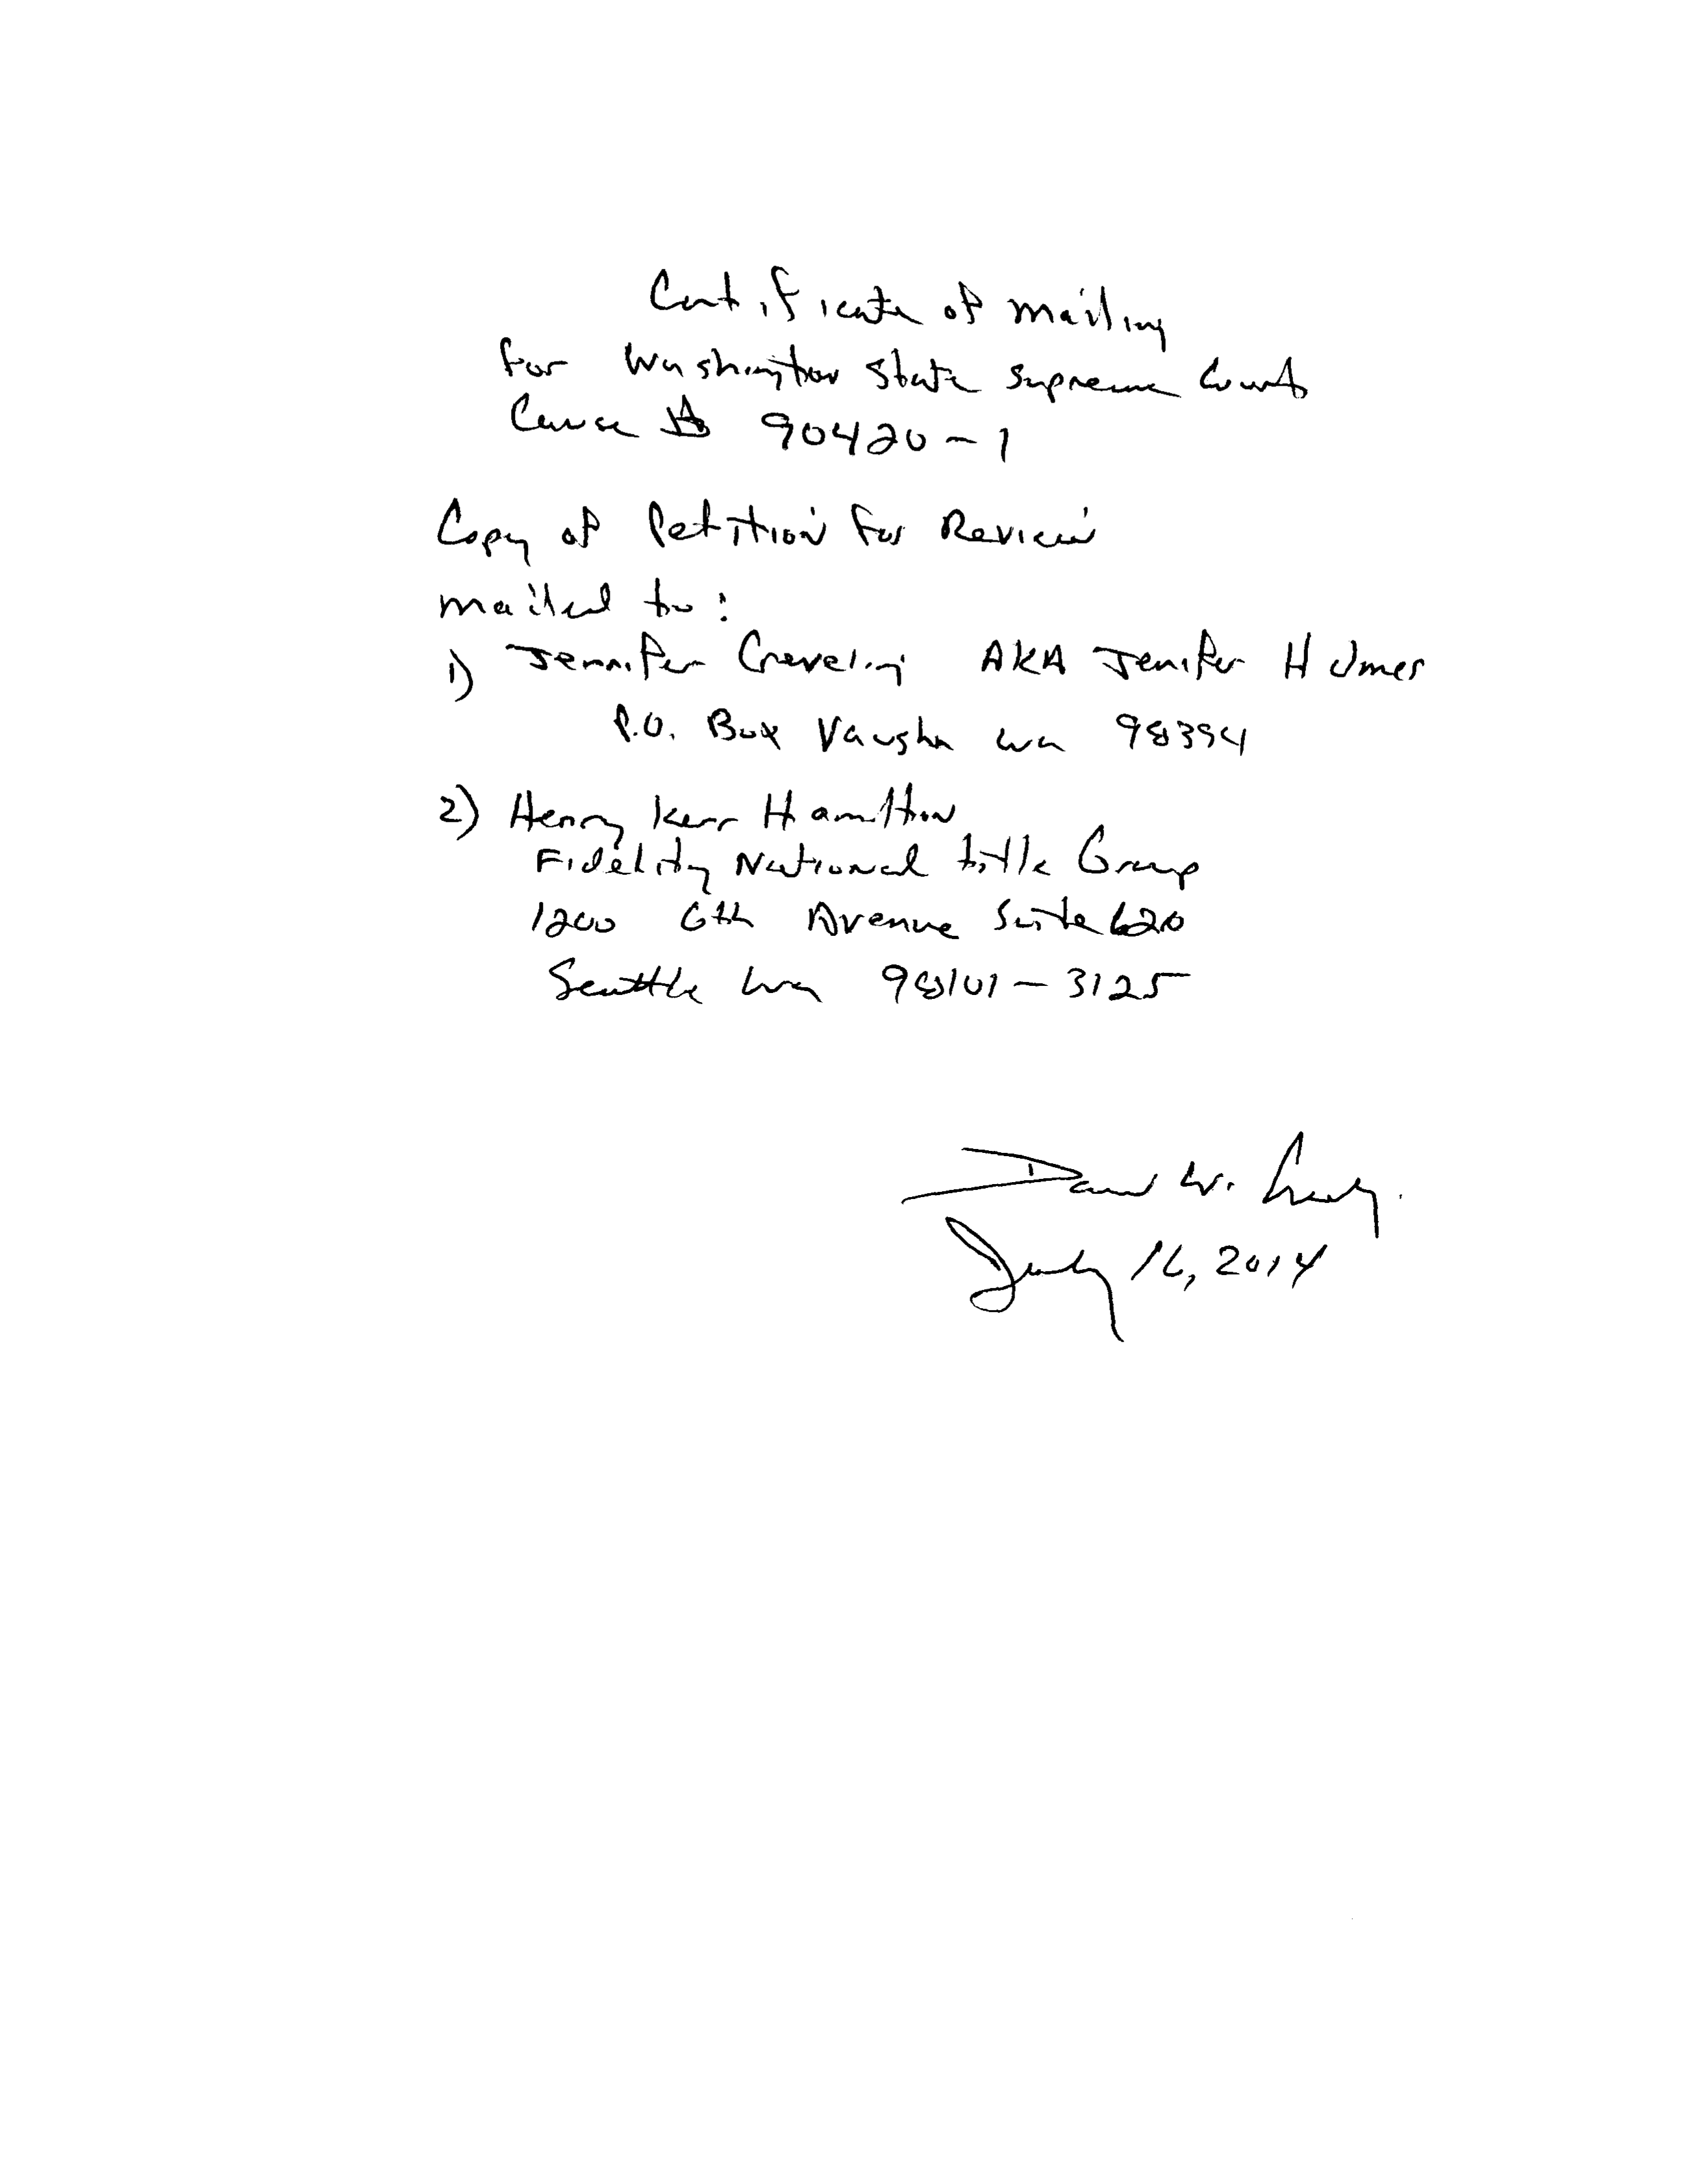 Certificate of mailing
for Washington State Supreme Court
Cause # 90420-1
Copy of Petition for Review
mailed to:
1) Jennifer Creveling AKA Jenifer Holmes
P.O. Box Vaughn wa 98394
2) Henry Kerr Hamilton
Fidelity National title Group
1200 6th Avenue Suite 620
Seattle wa 98101-3125
W.
July 16, 2014